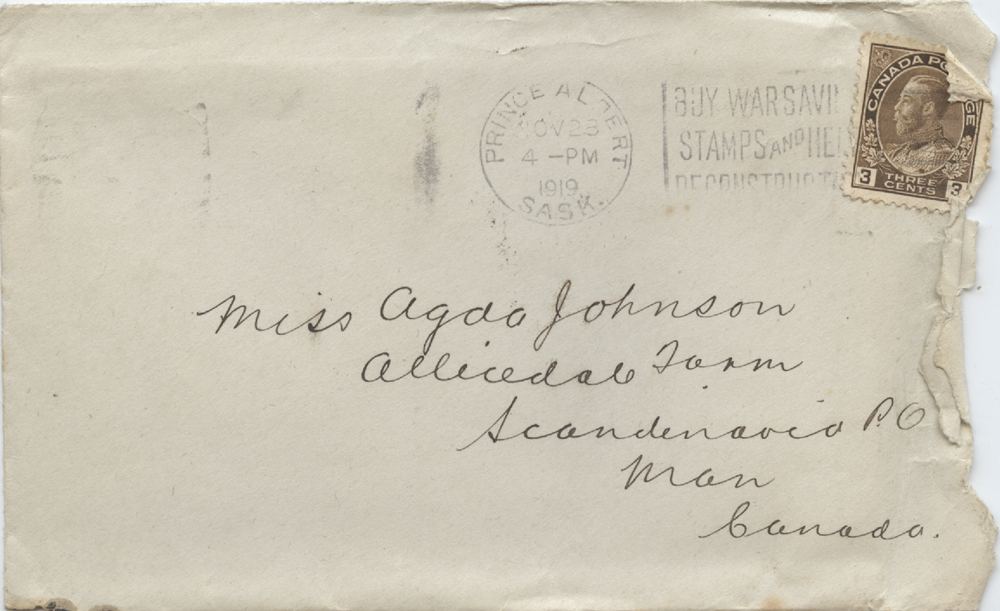 PRINCE ALBERT
NOV 28
4 -PM
1919
SASK.
BUY WAR SAVI
STAMPS AND HEL
RECONSTRUCTI
CANADA PO GE
3 THREE CENTS 3
Miss Agda Johnson
Allicedale Farm
Scandenavia P.O
Man
Canada.